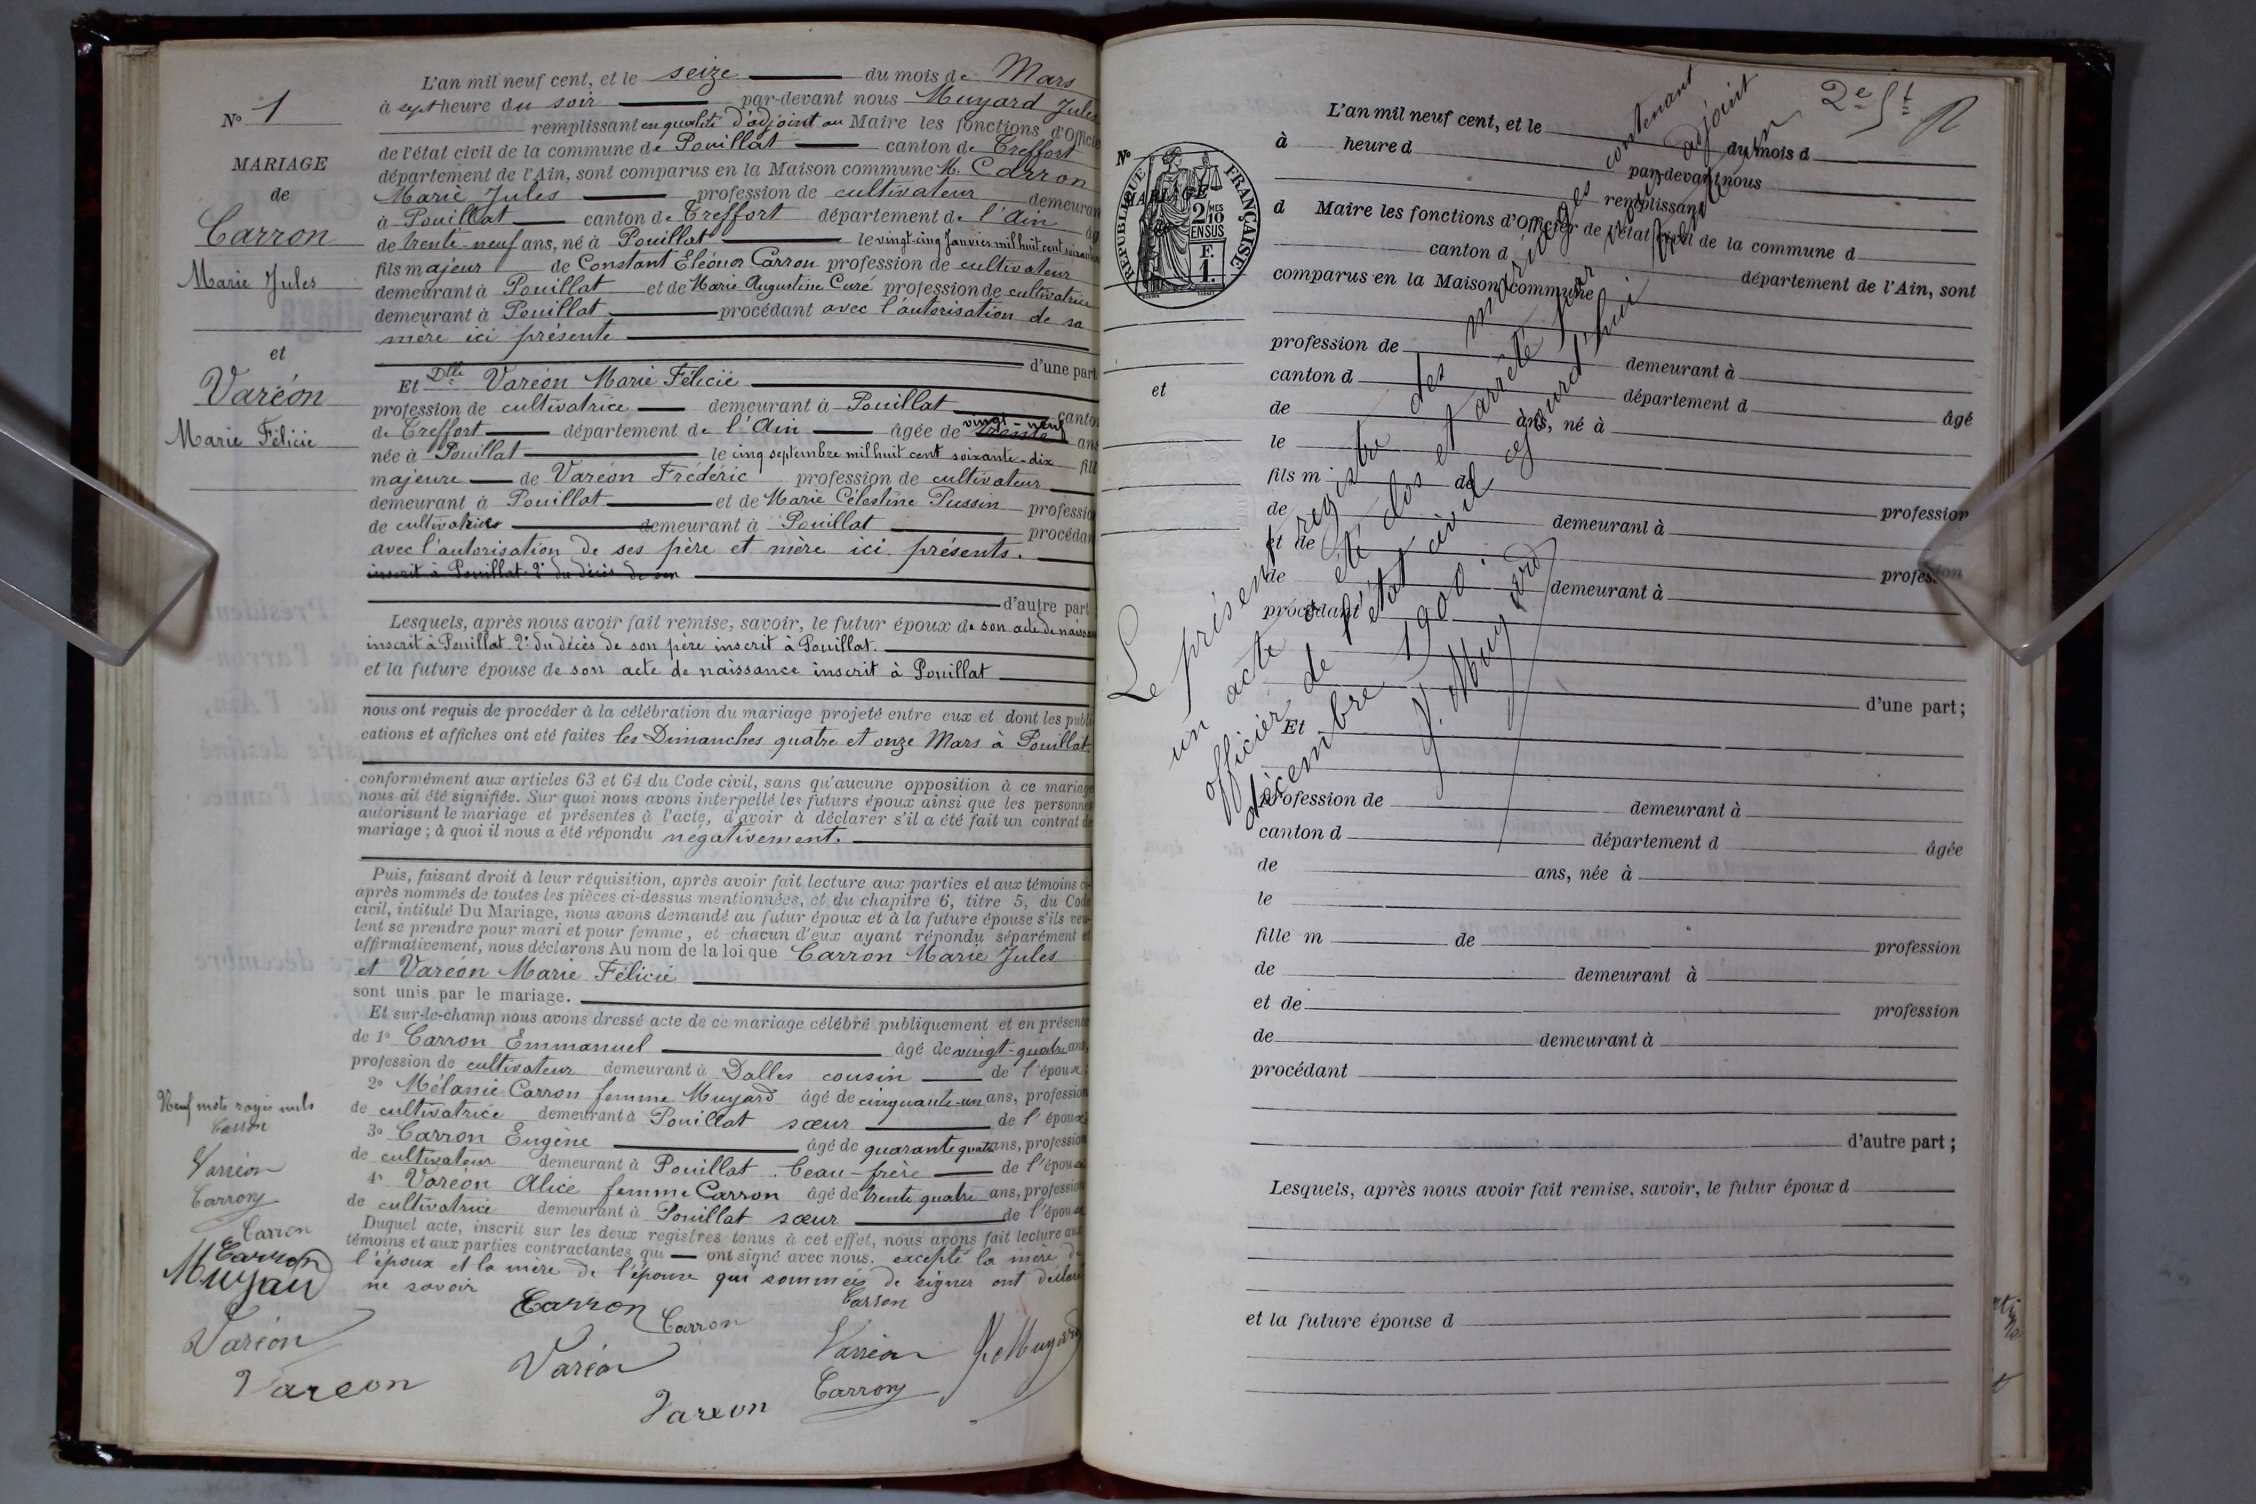 N° 1
MARIAGE
de
Carron
Marie Jules
et
Varéon
Marie Félicie
L'an mil neuf cent, et le seize du mois de Mars
à sept heure du soir par-devant nous Muyard Jules
remplissant en qualité d'adjoint au Maire les fonctions d'Officier
de l'état civil de la commune de Pouillat canton de Treffort
département de l'Ain, sont comparus en la Maison commune M. Carron
Marie Jules profession de cultivateur demeurant
à Pouillat canton de Treffort département de l'Ain âg
de trente-neuf ans, né à Pouillat le vingt-cinq Janvier mil huit cent
fils majeur de Constant Eléonor Carron profession de cultivateur
demeurant à Pouillat et de Marie Augustine Curé profession de cultivatrice
demeurant à Pouillat procédant avec l'autorisation de sa
mère ici présente
d'une part
Et Dlle Varéon Marie Félicie
profession de cultivatrice demeurant à Pouillat canton
de Treffort département de l'Ain âgée de vingt-neuf trente ans
née à Pouillat le cinq septembre mil huit cent soixante-dix fille
majeure de Varéon Frédéric profession de cultivateur
demeurant à Pouillat et de Marie Célestine Pussin profession
de cultivatrice demeurant à Pouillat procédant
avec l'autorisation de ses père et mère ici présents.
inscrit à Pouillat 2° du décès de son
d'autre part
Lesquels, après nous avoir fait remise, savoir, le futur époux de son acte de naissan
inscrit à Pouillat 2° du décès de son père inscrit à Pouillat.
et la future épouse de son acte de naissance inscrit à Pouillat
nous ont requis de procéder à la célébration du mariage projeté entre eux et dont les publi
cations et affiches ont été faites les Dimanches quatre et onze Mars à Pouillat.
conformément aux articles 63 et 64 du Code civil, sans qu'aucune opposition à ce mariage
nous ait été signifiée. Sur quoi nous avons interpellé les futurs époux ainsi que les personnes
autorisant le mariage et présentes à l'acte, d'avoir à déclarer s'il a été fait un contrat de
mariage ; à quoi il nous a été répondu négativement.
Puis, faisant droit à leur réquisition, après avoir fait lecture aux parties et aux témoins ci-
après nommés de toutes les pièces ci-dessus mentionnées, et du chapitre 6, titre 5, du Code
civil, intitulé Du Mariage, nous avons demandé au futur époux et à la future épouse s'ils veu-
lent se prendre pour mari et pour femme, et chacun d'eux ayant répondu séparément et
affirmativement, nous déclarons Au nom de la loi que Carron Marie Jules
et Varéon Marie Félicie
sont unis par le mariage.
Et sur-le-champ nous avons dressé acte de ce mariage célébré publiquement et en présence
de 1° Carron Emmanuel âgé de vingt-quatre ans,
profession de cultivateur demeurant à Dalles cousin de l'époux ;
2° Mélanie Carron femme Muyard âgé de cinquante-un ans, profession
de cultivatrice demeurant à Pouillat sœur de l'époux
3° Carron Eugène âgé de quarante quatre ans, profession
de cultivateur demeurant à Pouillat beau-frère de l'épouse
4° Varéon Alice femme Carron âgé de trente quatre ans, profession
de cultivatrice demeurant à Pouillat sœur de l'épouse
Duquel acte, inscrit sur les deux registres tenus à cet effet, nous avons fait lecture aux
témoins et aux parties contractantes qui ont signé avec nous. excepté la mère de
l'époux et la mère de l'épouse qui sommées de signer ont déclaré
ne savoir
Neuf mots rayés nuls
Carron
Varéon
Carron
Carron
Carron
Muyard
Varéon
Vareon
Carron
Carron
Carron
Varéon
Varéon
J. Muyard
Carron
Vareon
2e St
N°
MARIAGE
RÉPUBLIQUE FRANÇAISE
2/10 MES
EN SUS
F.
1.
et
L'an mil neuf cent, et le du mois d
à heure d par-devant nous
remplissant
d Maire les fonctions d'Officier de l'état civil de la commune d
canton d département de l'Ain, sont
comparus en la Maison commune
profession de demeurant à
canton d département d âgé
de ans, né à
le
fils m de profession
de demeurant à
et de profession
de demeurant à
procédant
d'une part ;
Et
profession de demeurant à
canton d département d âgée
de ans, née à
le
fille m de profession
de demeurant à
et de profession
de demeurant à
procédant
d'autre part ;
Lesquels, après nous avoir fait remise, savoir, le futur époux d
et la future épouse d
Le présent registre des mariages contenant
un acte a été clos et arrêté par nous adjoint
officier de l'état civil aujourd'hui
décembre 1900.
J. Muyard